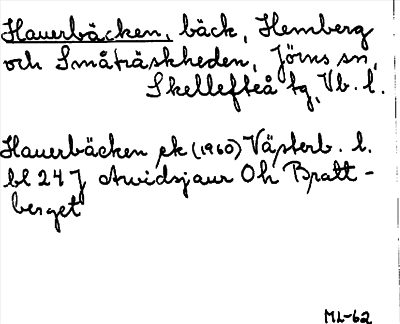 Hauerbäcken, bäck, Hemberg
och Småträskheden, Jörns sn,
Skellefteå tg, Vb. l.
Hauerbäcken ek (1960) Västerb. l.
bl 24 J Arvidsjaur Oh Bratt-
berget
ML-62